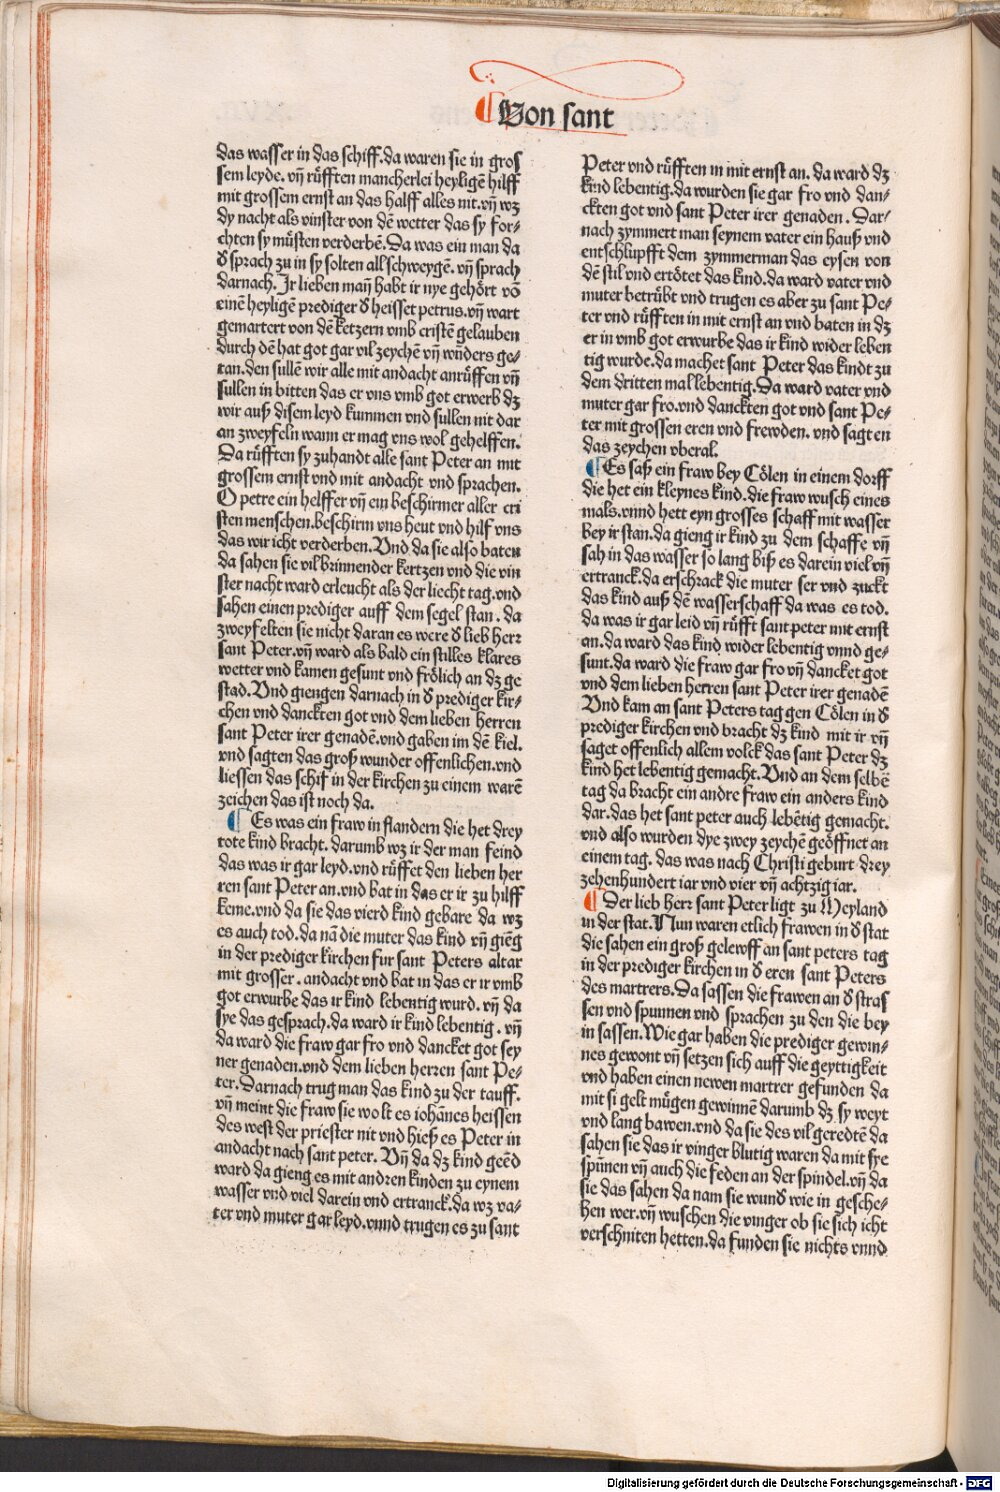 ¶ Von sant
das wasser in das schiff.da waren sie in gros
sem leyde. vn̄ růfften mancherlei heyligē hilff
mit grossem ernst an das halff alles nit.vn̄ wz
dy nacht als vinster von dē wetter das sy for⸗
chten sy můsten verderbē.Da was ein man da
đ sprach zu in sy solten all schweygē. vn̄ sprach
darnach. Ir lieben man̄ habt ir nye gehört vō
einē heyligē prediger đ heisset petrus.vn̄ wart
gemartert von dē ketzern vmb cristē gelauben
durch dē hat got gar vil zeychē vn̄ wūders ge⸗
tan.den sullē wir alle mit andacht anrůffen vn̄
sullen in bitten das er vns vmb got erwerb dz
wir auß disem leyd kummen vnd sullen nit dar
an zweyfeln wann er mag vns wol gehelffen.
Da růfften sy zuhandt alle sant Peter an mit
grossem ernst vnd mit andacht vnd sprachen.
O petre ein helffer vn̄ ein beschirmer aller cri
sten menschen.beschirm vns heut vnd hilf vns
das wir icht verderben.Vnd da sie also baten
da sahen sie vil brinnender kertzen vnd die vin
ster nacht ward erleucht als der liecht tag.vnd
sahen einen prediger auff dem segel stan. da
zweyfelten sie nicht daran es were đ lieb herr
sant Peter.vn̄ ward als bald ein stilles klares
wetter vnd kamen gesunt vnd frölich an dz ge
stad.Vnd giengen darnach in đ prediger kir⸗
chen vnd danckten got vnd dem lieben herren
sant Peter irer genadē.vnd gaben im dē kiel.
vnd sagten das groß wunder offenlichen.vnd
liessen das schif in der kirchen zu einem warē
zeichen das ist noch da.
¶ Es was ein fraw in flandern die het drey
tote kind bracht. darumb wz ir der man feind
das was ir gar leyd.vnd růffet den lieben her
ren sant Peter an.vnd bat in das er ir zu hilff
keme.vnd da sie das vierd kind gebare da wz
es auch tod.da nā die muter das kind vn̄ giēg
in der prediger kirchen fur sant Peters altar
mit grosser.andacht vnd bat in das er ir vmb
got erwurbe das ir kind lebentig wurd. vn̄ da
sye das gesprach.da ward ir kind lebentig. vn̄
da ward die fraw gar fro vnd dancket got sey
ner genaden.vnd dem lieben herren sant Pe⸗
ter.Darnach trug man das kind zu der tauff.
vn̄ meint die fraw sie wolt es iohānes heissen
des west der priester nit vnd hieß es Peter in
andacht nach sant peter. Vn̄ da dz kind geēd
ward da gieng es mit andren kinden zu eynem
wasser vnd viel darein vnd ertranck.da wz va⸗
ter vnd muter gar leyd.vnnd trugen es zu sant
Peter vnd růfften in mit ernst an. da ward dz
kind lebentig.da wurden sie gar fro vnd dan⸗
ckten got vnd sant Peter irer genaden. Dar⸗
nach zymmert man seynem vater ein hauß vnd
entschlupfft dem zymmerman das eysen von
dē stil vnd ertötet das kind.da ward vater vnd
muter betrůbt vnd trugen es aber zu sant Pe⸗
ter vnd růfften in mit ernst an vnd baten in dz
er in vmb got erwurbe das ir kind wider leben
tig wurde.da machet sant Peter das kindt zu
dem dritten mal lebentig.Da ward vater vnd
muter gar fro.vnd danckten got vnd sant Pe⸗
ter mit grossen eren vnd frewden. vnd sagten
das zeychen vberal.
¶ Es saß ein fraw bey Cölen in einem dorff
die het ein kleynes kind.die fraw wusch eines
mals.vnnd hett eyn grosses schaff mit wasser
bey ir stan.da gieng ir kind zu dem schaffe vn̄
sah in das wasser so lang biß es darein viel vn̄
ertranck.da erschrack die muter ser vnd zuckt
das kind auß dē wasserschaff da was es tod.
da was ir gar leid vn̄ růfft sant peter mit ernst
an.da ward das kind wider lebentig vnnd ge⸗
sunt.da ward die fraw gar fro vn̄ dancket got
vnd dem lieben herren sant Peter irer genadē
Vnd kam an sant Peters tag gen Cölen in đ
prediger kirchen vnd bracht dz kind mit ir vn̄
saget offenlich allem volck das sant Peter dz
kind het lebentig gemacht.Vnd an dem selbē
tag da bracht ein andre fraw ein anders kind
dar.das het sant peter auch lebētig gemacht.
vnd also wurden dye zwey zeychē geöffnet an
einem tag. das was nach Christi geburt drey
zehenhundert iar vnd vier vn̄ achtzig iar.
¶ Der lieb herr sant Peter ligt zu Meyland
in der stat.Nun waren etlich frawen in đ stat
die sahen ein groß gelewff an sant peters tag
in der prediger kirchen in đ eren sant Peters
des martrers.Da sassen die frawen an đ stras
sen vnd spunnen vnd sprachen zu den die bey
in sassen.Wie gar haben die prediger gewin⸗
nes gewont vn̄ setzen sich auff die geyttigkeit
vnd haben einen newen martrer gefunden da
mit si gelt můgen gewinnē darumb dz sy weyt
vnd lang bawen.vnd da sie des vil geredtē da
sahen sie das ir vinger blutig waren da mit sye
spūnen vn̄ auch die feden an der spindel.vn̄ da
sie das sahen da nam sie wund̄ wie in gesche⸗
hen wer.vn̄ wuschen die vinger ob sie sich icht
verschniten hetten.da funden sie nichts vnnd
Digitalisierung gefördert durch die Deutsche Forschungsgemeinschaft - DFG